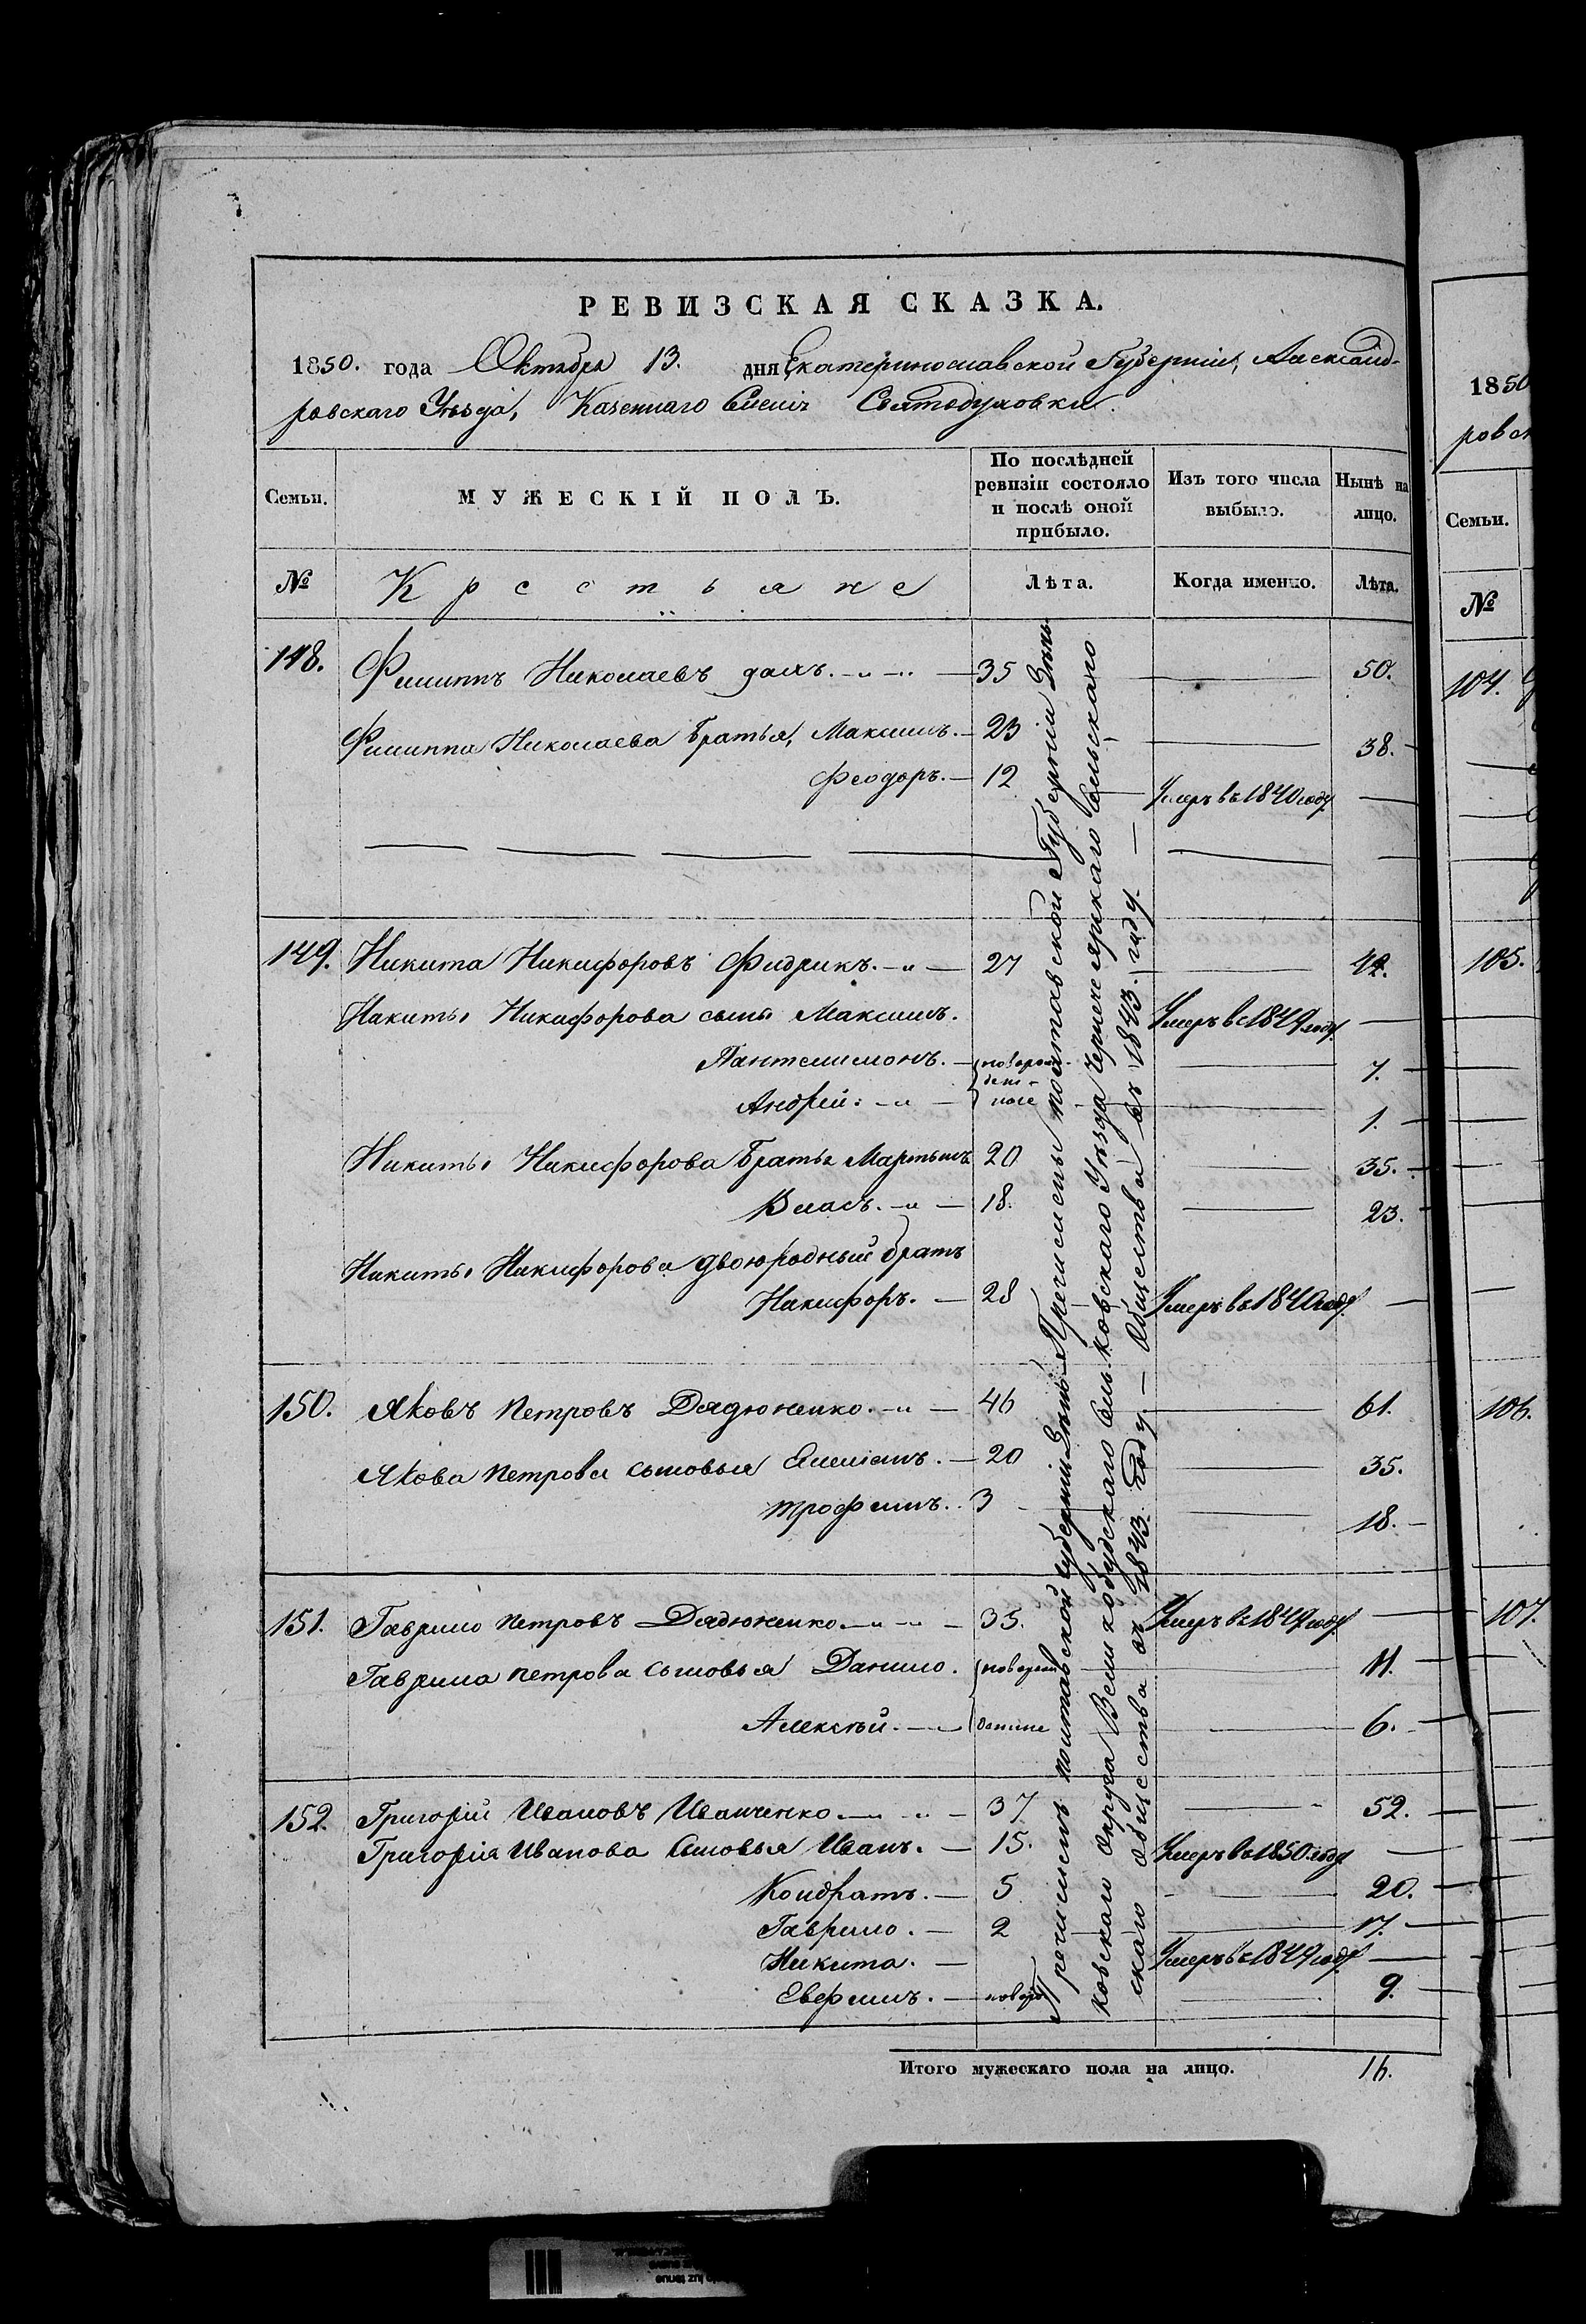 РЕВИЗСКАЯ СКАЗКА.
1850. года Октября 13. дня Екатеринославской Губерніи, Александ-
ровскаго Уѣзда, Казеннаго Селенія Святодуховки.
Семьи.
МУЖЕСКІЙ ПОЛЪ.
По послѣдней ревизіи состояло и послѣ оной прибыло.
Изъ того числа выбыло.
Нынѣ на лицо.
№
Крестьяне
Лѣта.
Когда именно.
Лѣта.
148. Филиппъ Николаевъ 35 50.
Филиппа Николаева братья, Максимъ. 23 38.
Феодоръ. 12 Умеръ въ 1840 году.
149. Никита Никифоровъ Фидрикъ. 27 42.
Никиты Никифорова сынъ Максимъ. Умеръ въ 1849 году.
Пантелимонъ. новорож- 7.
ден-
Андрей. ные 1.
Никиты Никифорова братья Мартынъ 20 35.
Власъ. 18. 23.
Никиты Никифорова двоюродный братъ
Никифоръ. 28 Умеръ въ 1840 году.
150. Яковъ Петровъ Дядюженко. 46 61.
Якова Петрова сыновья Емеліанъ. 20 35.
Трофимъ. 3 18.
151. Гаврило Петровъ Дядюженко. 35. Умеръ въ 1849 году.
Гаврила Петрова сыновья Данило. новорож 11.
Алексѣй. денные 6.
152. Григорій Ивановъ Иванченко. 37 52.
Григорія Иванова сыновья Иванъ. 15. Умеръ въ 1850 году.
Кондратъ. 5 20.
Гаврило. 2 17.
Никита. Умеръ въ 1849 году.
Евфимъ. новоро 9.
Причислены Полтавской Губерніи Зинь-
ковскаго Уѣзда Сельскаго
Общества въ 1843. году.
Причислен Полтавской Губерніи Зинь-
ковскаго Округа Сельскаго
Общества въ 1843. году.
Итого мужескаго пола на лицо. 16.
1850
ровск
Семьи.
№
104.
105.
106.
107.